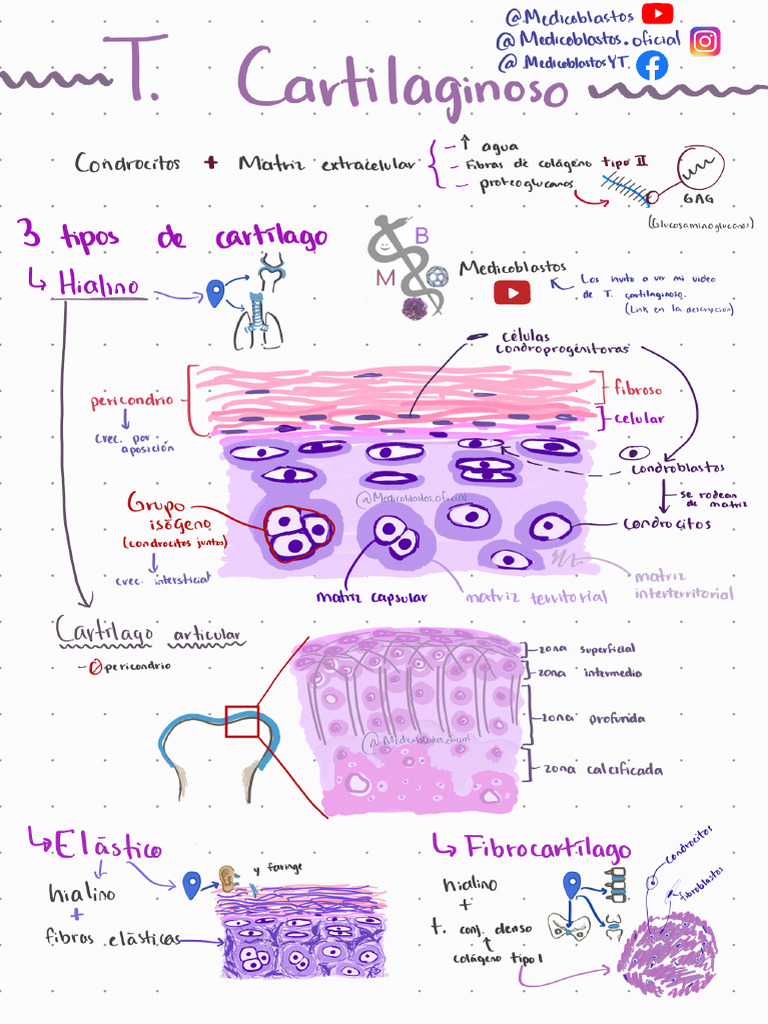 @Medicoblastos
@Medicoblastos.oficial
@MedicoblastosYT
T. Cartilaginoso
Condrocitos + Matriz extracelular
- ↑ agua
- Fibras de colágeno tipo II
- proteoglucanos
GAG
(Glucosaminoglucanos)
3 tipos de cartílago
↳ Hialino
B
M
Medicoblastos
Los invito a ver mi video
de T. cartilaginoso.
(Link en la descripción)
células
condroprogenitoras
pericondrio
fibroso
celular
crec. por
aposición
condroblastos
@Medicoblastos.oficial
se rodean
de matriz
Grupo
isógeno
(condrocitos juntos)
condrocitos
crec. intersticial
matriz capsular
matriz territorial
matriz
interterritorial
Cartílago articular
- Ø pericondrio
zona superficial
zona intermedia
zona profunda
@Medicoblastos.oficial
zona calcificada
↳ Elástico
y faringe
hialino
+
fibras elásticas
↳ Fibrocartílago
condrocitos
fibroblastos
hialino
+
t. conj. denso
colágeno tipo I